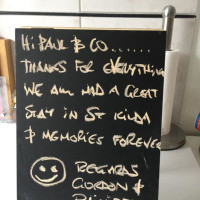 Hi PAUL & CO......
THANKS FOR EVERYTHING
WE ALL HAD A GREAT
STAY IN ST KILDA
& MEMORIES FOREVER
REGARDS
GORDON &